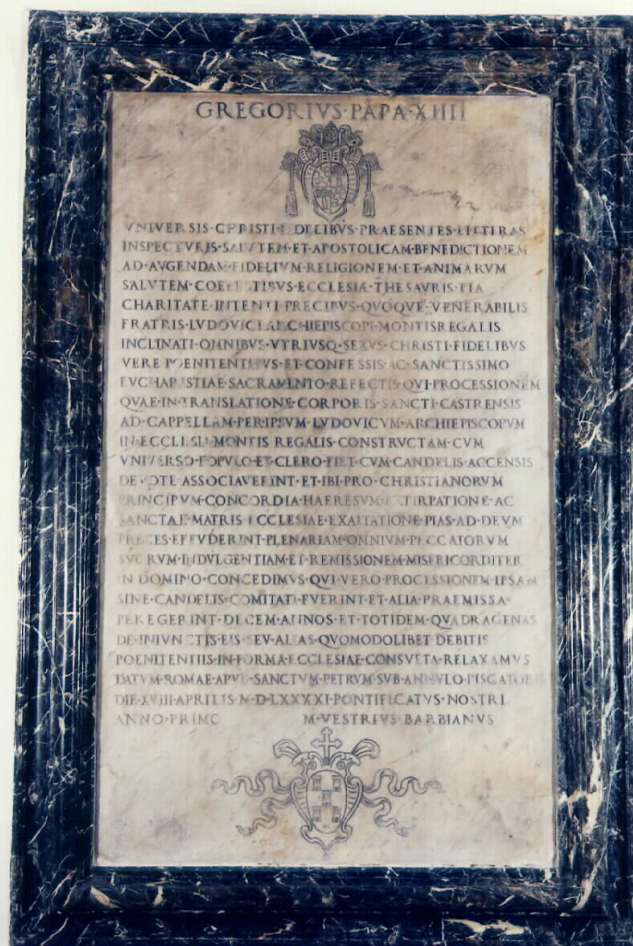 GREGORIVS·PAPA·XIIII
VNIVERSIS·CHRISTI·FIDELIBVS·PRAESENTES·LITTERAS
INSPECTVRIS·SALVTEM·ET·APOSTOLICAM·BENEDICTIONEM
AD·AVGENDAM·FIDELIVM·RELIGIONEM·ET·ANIMARVM
SALVTEM·COELESTIBVS·ECCLESIA·THESAVRIS·PIA
CHARITATE·INTENTI·PRECIBVS·QVOQVE·VENERABILIS
FRATRIS·LVDOVICI·ARCHIEPISCOPI·MONTISREGALIS
INCLINATI·OMNIBVS·VTRIVSQ·SEXVS·CHRISTI·FIDELIBVS
VERE POENITENTIBVS·ET·CONFESSIS·AC·SANCTISSIMO
EVCHARISTIAE·SACRAMENTO·REFECTIS·QVI·PROCESSIONEM
QVAE·IN·TRANSLATIONE·CORPORIS·SANCTI·CASTRENSIS
AD·CAPPELLAM·PER·IPSVM·LVDOVICVM·ARCHIEPISCOPVM
IN·ECCLESIA·MONTIS REGALIS·CONSTRVCTAM·CVM
VNIVERSO·POPVLO·ET·CLERO·FIET·CVM·CANDELIS·ACCENSIS
DEVOTE ASSOCIAVERINT·ET·IBI·PRO·CHRISTIANORVM
PRINCIPVM·CONCORDIA·HAERESVM·EXTIRPATIONE·AC
SANCTAE·MATRIS·ECCLESIAE·EXALTATIONE·PIAS·AD·DEVM
PRECES·EFFVDERINT·PLENARIAM·OMNIVM·PECCATORVM
SVORVM·INDVLGENTIAM·ET·REMISSIONEM·MISERICORDITER
IN DOMINO·CONCEDIMVS·QVI·VERO·PROCESSIONEM·IPSAM
SINE·CANDELIS·COMITATI·FVERINT·ET·ALIA·PRAEMISSA
PEREGERINT·DECEM·ANNOS·ET·TOTIDEM·QVADRAGENAS
DE·INIVNCTIS·EIS·SEV·ALIAS·QVOMODOLIBET·DEBITIS
POENITENTIIS·IN·FORMA·ECCLESIAE·CONSVETA·RELAXAMVS
DATVM·ROMAE·APVD·SANCTVM·PETRVM·SVB·ANNVLO·PISCATORIS
DIE·XVIII·APRILIS M·D·LXXXXI·PONTIFICATVS·NOSTRI
ANNO·PRIMO M·VESTRIVS·BARBIANVS